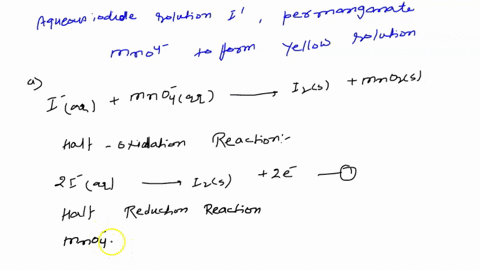 Aqueous iodide solution I⁻, permanganate
MnO4⁻ to form yellow solution
a)
I⁻(aq) + MnO4⁻(aq) → I2(s) + MnO2(s)
Half - oxidation Reaction:-
2I⁻(aq) → I2(s) + 2e⁻ — ①
Half Reduction Reaction
MnO4⁻